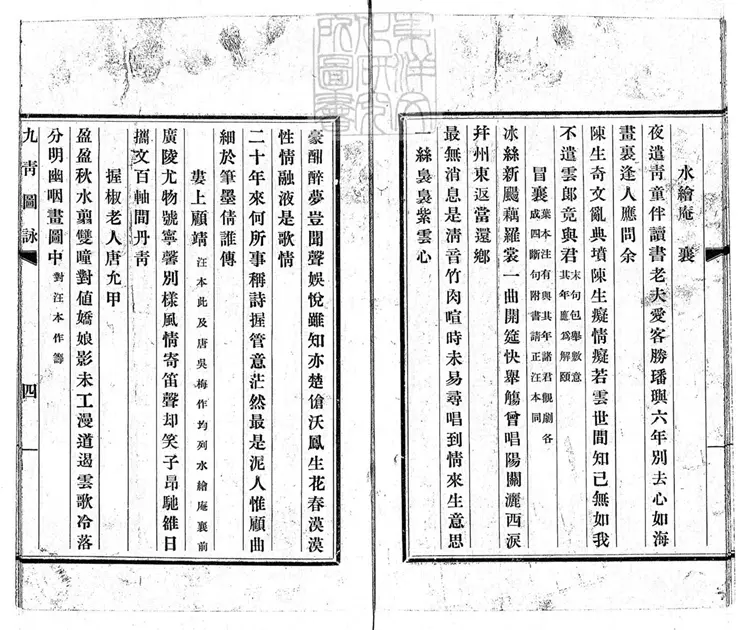 水繪庵 襄
夜遣青童伴讀書老夫愛客勝璠璵六年別去心如海
畫裏逢人應問余
陳生奇文亂典墳陳生癡情癡若雲世間知己無如我
不遣雲郎竟與君 末句包舉數意
其年應為解頤
冒襄 葉本注有與其年諸君觀劇各
成四斷句附書請正汪本同
冰絲新颺藕羅裳一曲開筵快舉觴曾唱陽關灑西淚
并州東返當還鄉
最無消息是清音竹肉喧時未易尋唱到情來生意思
一絲裊裊紫雲心
豪酣醉夢豈聞聲娛悅雖知亦楚傖沃鳳生花春漠漠
性情融液是歌情
二十年來何所事稱詩握管意茫然最是泥人惟顧曲
細於筆墨倩誰傳
婁上顧靖 汪本此及唐吳梅作均列水繪庵襄前
廣陵尤物號寧馨別樣風情寄笛聲却笑子昂馳雒日
攜文百軸間丹青
握椒老人唐允甲
盈盈秋水翦雙瞳對值嬌娘影未工漫道遏雲歌冷落
分明幽咽畫圖中 對汪本作籌
九青圖詠 四